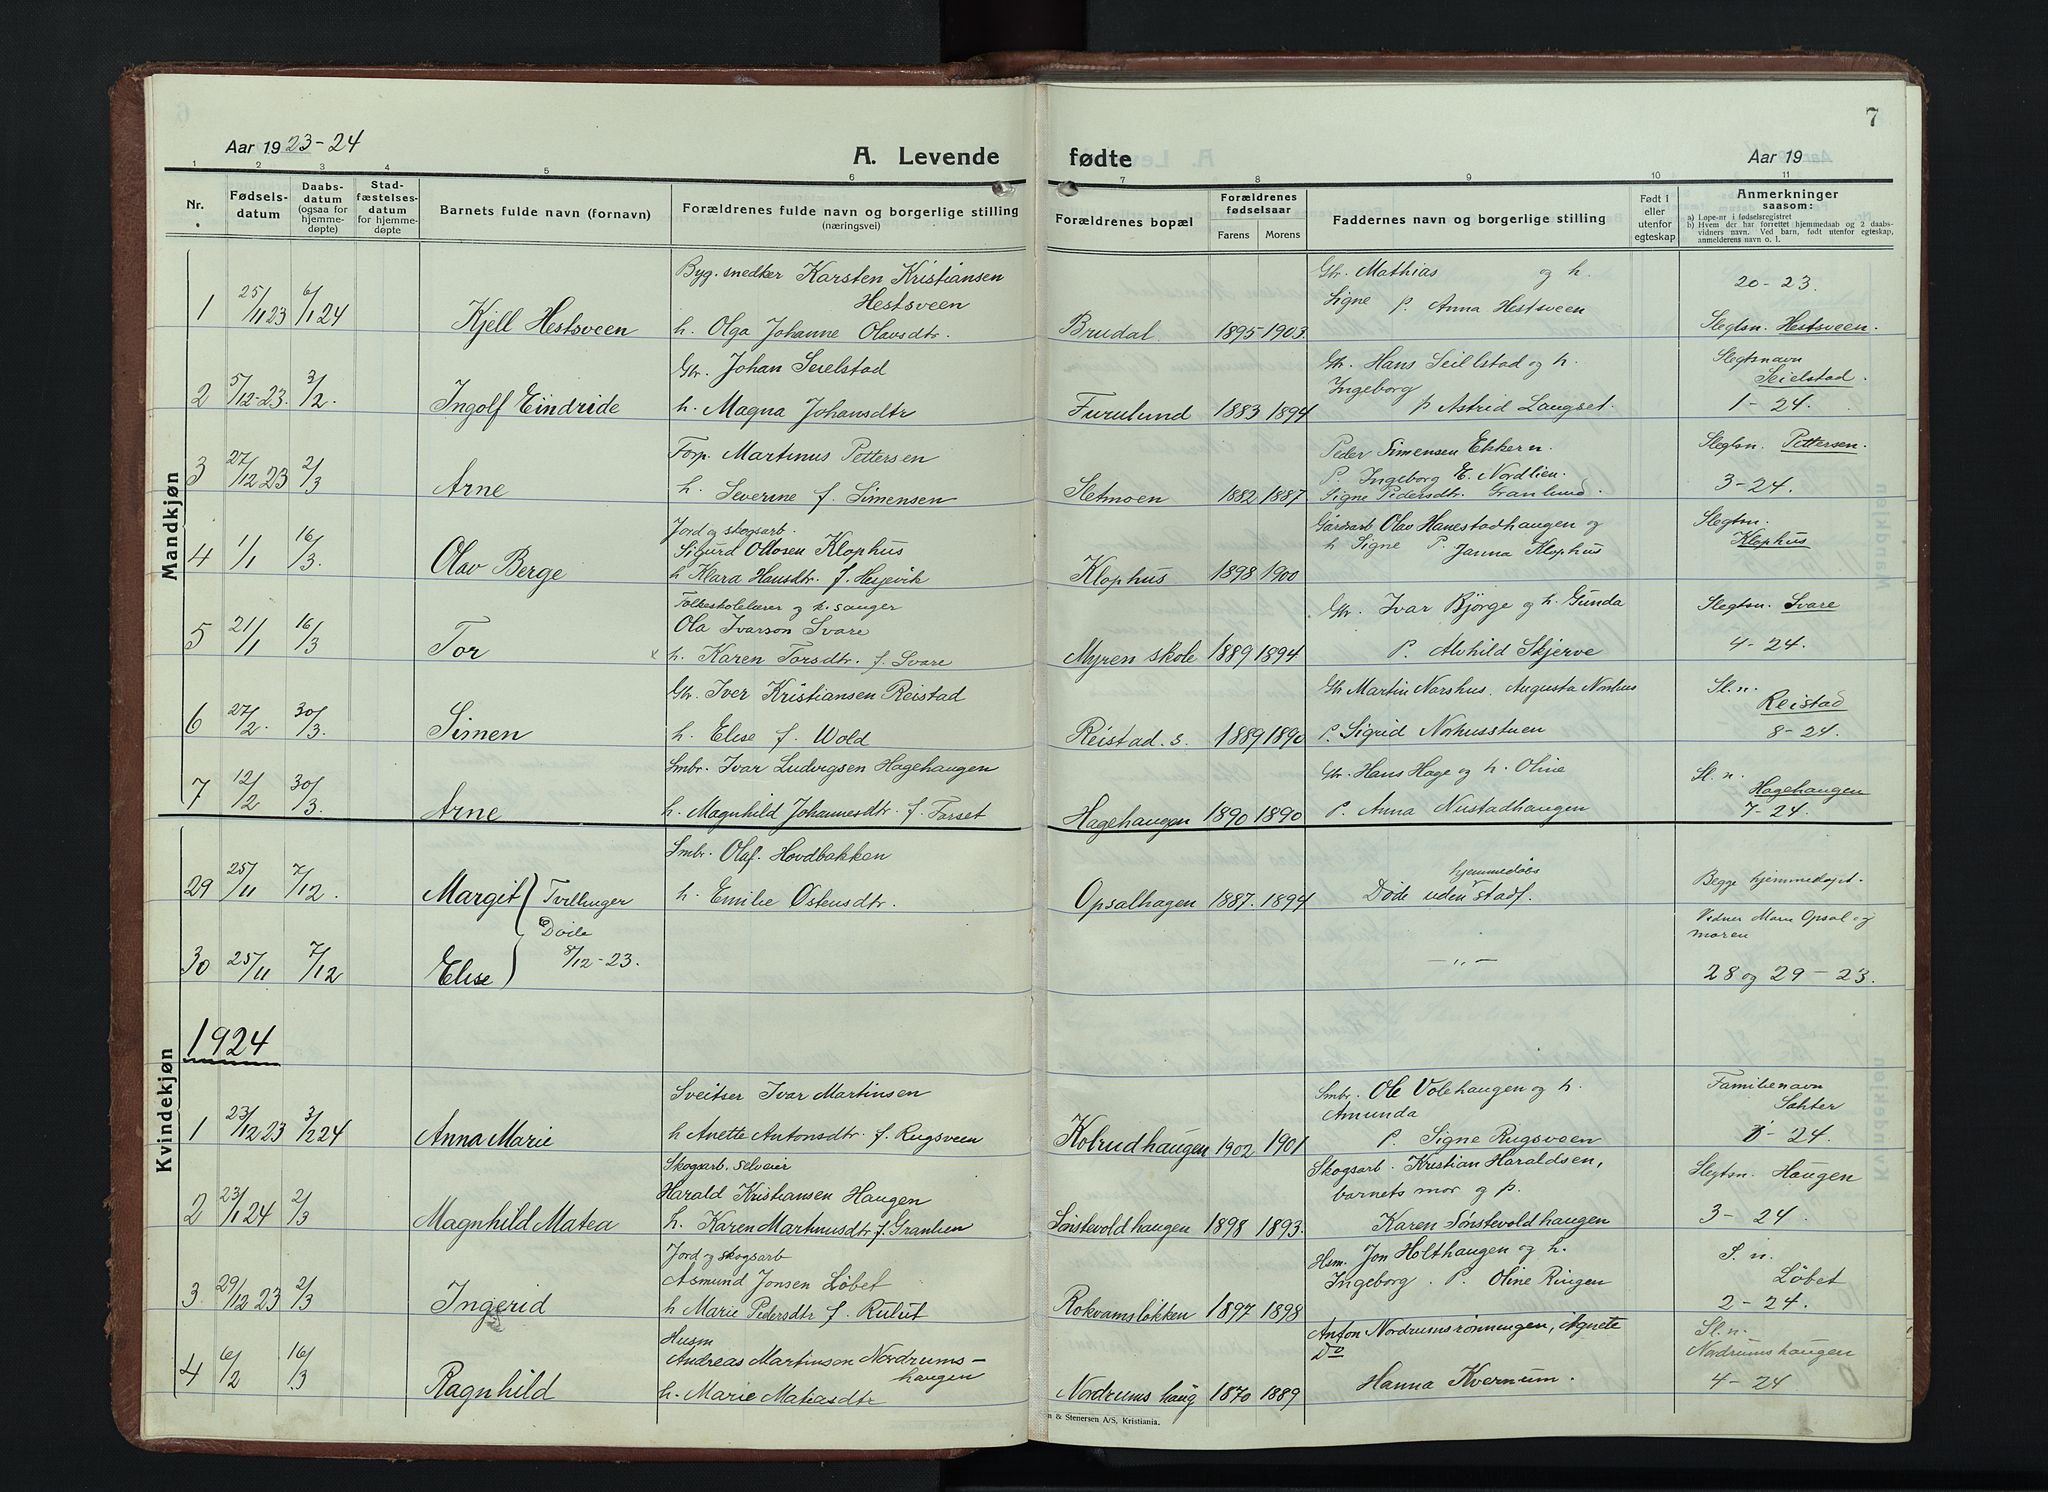 7
Aar 1923-24
A. Levende
fødte
Aar 19
1 2 3 4 5 6 7 8 9 10 11
Nr.
Fødsels-datum
Daabs-datum (ogsaa for hjemme-døpte)
Stad-fæstelses-datum for hjemme-døpte
Barnets fulde navn (fornavn)
Forældrenes fulde navn og borgerlige stilling (næringsvei)
Forældrenes bopæl
Forældrenes fødselsaar
Farens Morens
Faddernes navn og borgerlige stilling
Født i eller utenfor egteskap
Anmerkninger saasom:
a) Løpe-nr i fødselsregistret
b) Hvem der har forrettet hjemmedaab og 2 daabs-vidners navn. Ved barn, født utenfor egteskap, anmelderens navn o. l.
Mandkjøn
Byg. snedker Karsten Kristiansen Hestsveen
Gbr. Mathias og h.
20-23.
1 25/11 23 6/1 24 Kjell Hestsveen h. Olga Johanne Olavsdtr. Brudal 1895 1903. Signe p. Anna Hestsveen Slegtsn. Hestsveen.
Gbr. Johan Seielstad
Gbr. Hans Seillstad og h. Ingeborg
Slegtsnavn Seielstad.
2 5/12-23. 3/2. Ingolf Eindride h. Magna Johansdtr Furulund 1883 1894 p Astrid Langset. 1-24.
Forp. Martinus Pettersen
Peder Simensen Ekkern.
Slegtsn. Pettersen.
3 27/12 23 2/3 Arne h. Severine f. Simensen Sletmoen 1882 1887 P. Ingeborg E. Nordlien. Signe Pedersdtr. Granlund. 3-24.
Jord og skogsarb.
Sigurd Ottosen Klophus
Gårdsarb Olav Hanestadhaugen og
Slegtsn. Klophus
4 1/1 16/3. Olav Berge h Klara Hansdtr. f. Hesjevik Klophus 1898 1900 h Signe P. Janna Klophus
Folkeskolelærer og k. sanger
Ola Ivarson Svare
Gbr. Ivar Bjørge og h. Gunda
Slegtsn. Svare
5 21/1 16/3 Tor h. Karen Torsdtr. f. Svare Myren skole 1889 1894 P. Alvhild Skjerve 4-24.
Gbr. Iver Kristiansen Reistad
Gb Martin Norshus. Augusta Norhus
Sl. n. Reistad
6 27/2. 30/3. Simen h. Elise f. Wold Reistad. s. 1889 1890 P. Sigrid Norhusstuen 8-24.
Smbr. Ivar Ludvigsen Hagehaugen
Gbr. Hans Hage og h. Oline
Sl. n. Hagehaugen
7 12/2 30/3. Arne h. Magnhild Johannesdtr. f. Torset Hagehaugen 1890 1890 P. Anna Nustadhaugen 7-24.
Kvindekjøn
Smbr. Olaf. Hovdbakken
hjemmedøbs
Begge hjemmedøpt.
29 25/11 7/12. Margit Tvillinger h. Emilie Østensdtr. Opsalhagen 1887. 1894 Døde uden stadf.
Vidner Marie Opsal og moren
Døde 8/12-23.
30 25/11 7/12 Elise -„- 28 og 29-23.
1924
Sveitser Ivar Martinsen
Smbr. Ole Volehaugen og h. Amunda
Familienavn Sahter
1 23/12 23 3/2 24 Anna Marie h Anette Antonsdtr. f. Rugsveen Kolrudhaugen 1902 1901 P. Signe Rugsveen 1-24.
Skogsarb. selveier
Harald Kristiansen Haugen
Skogsarb. Kristian Haraldsen, barnets mor og p.
Slegtsn. Haugen
2 23/1 24 2/3 Magnhild Matea h. Karen Martinusdtr f. Granlien Sønstevoldhaugen 1898 1893. Karen Sønstevoldhaugen 3-24.
Jord og skogsarb
Asmund Jonsen Løbet
Hsm. Jon Holthaugen og h.
S. n. Løbet
3 29/12 23 2/3 Ingerid h Marie Pedersdtr f. Rulut Rokvamsløkken 1897 1898 Ingeborg. P. Oline Ringen 2-24.
Husm
Andreas Martinsen Nordrumshaugen
Anton Nordrumsrønningen, Agnete Do
Sl. n. Nordrumshaugen
4 6/2 16/3 Ragnhild h. Marie Matiasdtr Nordrums haug 1870 1889 Hanna Kvernum. 4-24
n & Stenersen A/S, Kristiania.